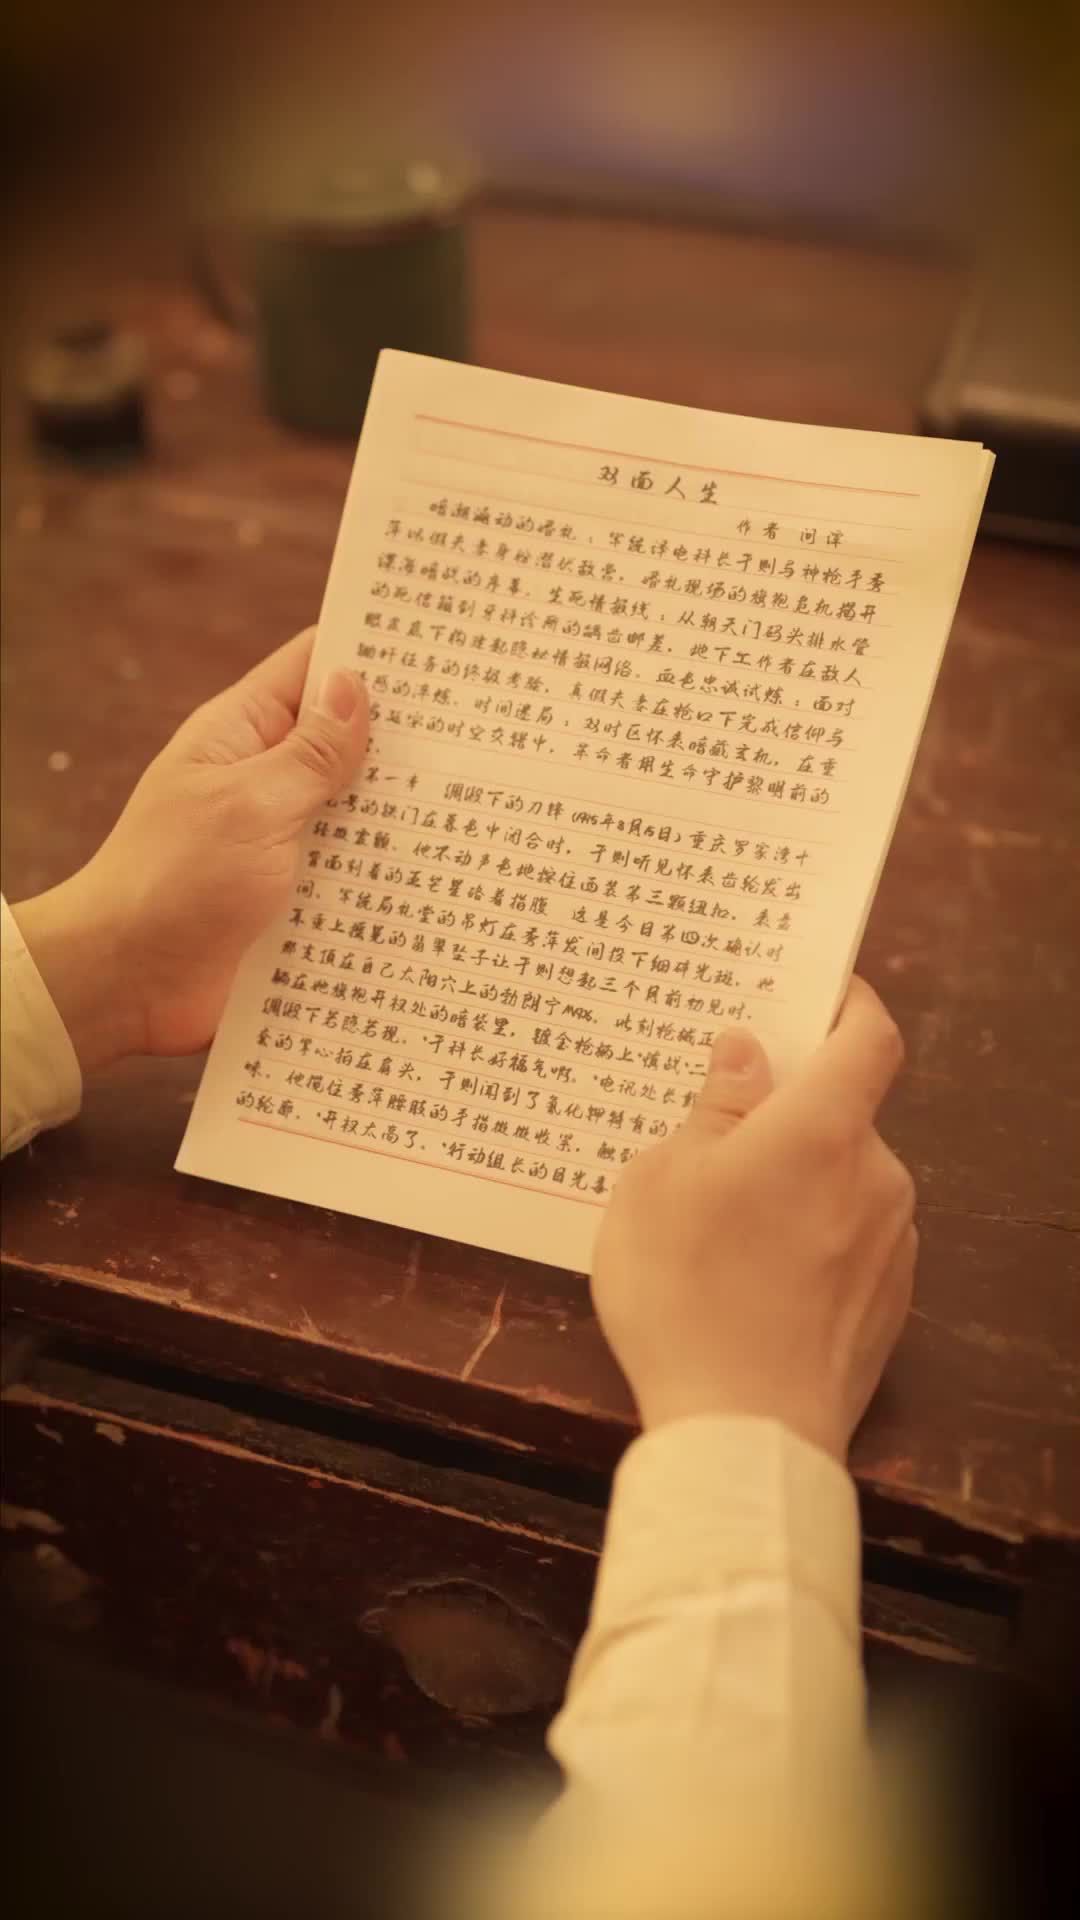 双面人生
作者 问谭
暗潮涌动的婚礼：军统译电科长于则与神枪手秀
萍以假夫妻身份潜伏敌营，婚礼现场的旗袍危机揭开
谍海暗战的序幕。生死情报线：从朝天门码头排水管
的死信箱到牙科诊所的龋齿邮差，地下工作者在敌人
眼皮底下构建起隐秘情报网络。血色忠诚试炼：面对
锄奸任务的终极考验，真假夫妻在枪口下完成信仰与
情感的淬炼。时间迷局：双时区怀表暗藏玄机，在重
的时空交错中，革命者用生命守护黎明前的
第一章 绸缎下的刀锋（1945年8月15日）重庆罗家湾十
号的铁门在暮色中闭合时，于则听见怀表齿轮发出
轻微震颤。他不动声色地按住西装第三颗纽扣，表盘
背面刻着的五芒星硌着指腹 这是今日第四次确认时
间。军统局礼堂的吊灯在秀萍发间投下细碎光斑，她
耳垂上摇晃的翡翠坠子让于则想起三个月前初见时，
那支顶在自己太阳穴上的勃朗宁M1906。此刻枪械正
躺在她旗袍开衩处的暗袋里，镀金枪柄上“慎战”二
绸缎下若隐若现。“于科长好福气啊。”电讯处长
套的掌心拍在肩头，于则闻到了氰化钾特有的
味。他揽住秀萍腰肢的手指微微收紧，触到
的轮廓。“开衩太高了。”行动组长的目光毒